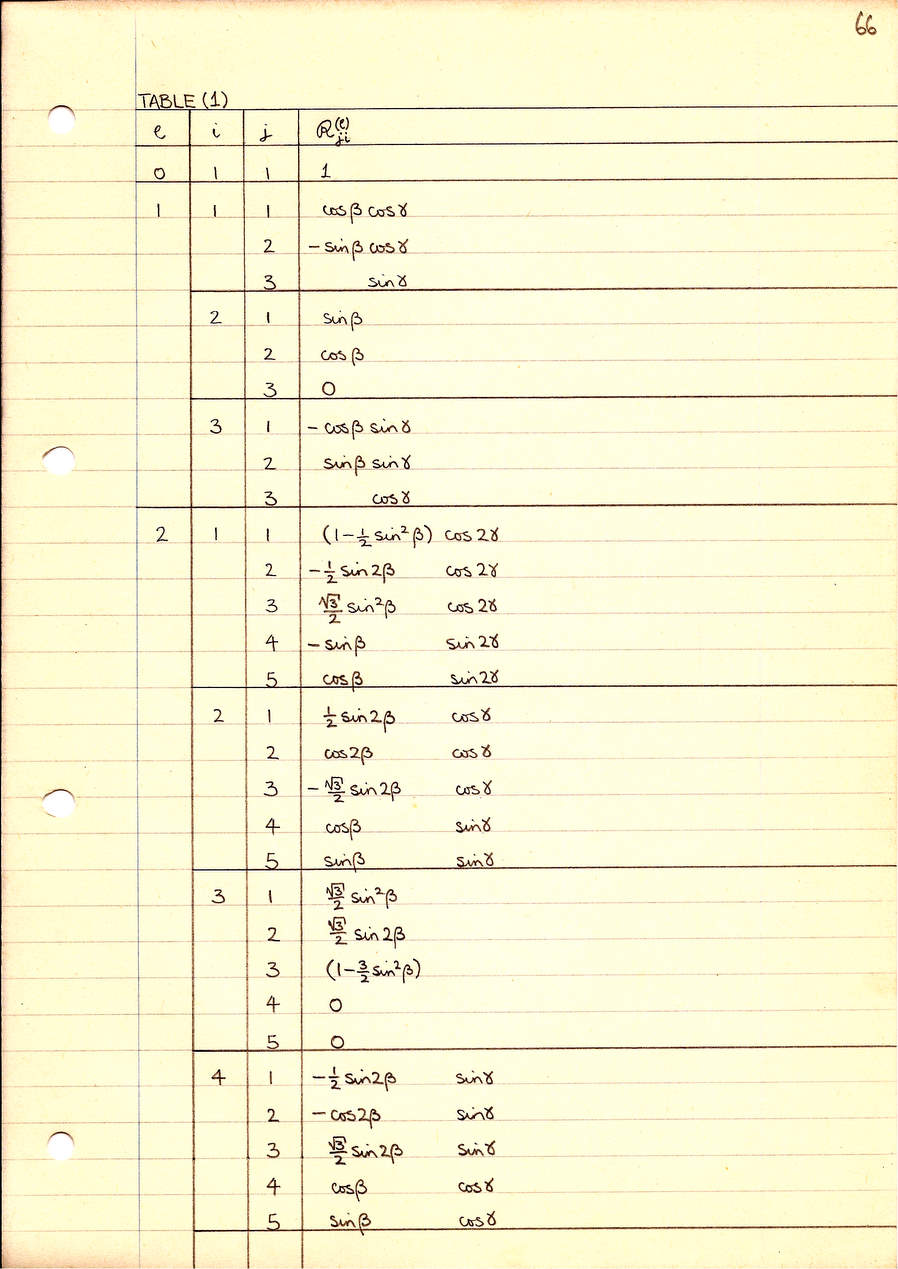 66
TABLE (1)
l i j R_ji^(l)
0 1 1 1
1 1 1 cosβ cosγ
2 - sinβ cosγ
3 sinγ
2 1 sinβ
2 cosβ
3 0
3 1 - cosβ sinγ
2 sinβ sinγ
3 cosγ
2 1 1 (1-½sin²β) cos2γ
2 -½sin2β cos2γ
3 √3/2 sin²β cos2γ
4 - sinβ sin2γ
5 cosβ sin2γ
2 1 ½sin2β cosγ
2 cos2β cosγ
3 - √3/2 sin2β cosγ
4 cosβ sinγ
5 sinβ sinγ
3 1 √3/2 sin²β
2 √3/2 sin2β
3 (1-3/2sin²β)
4 0
5 0
4 1 -½sin2β sinγ
2 - cos2β sinγ
3 √3/2 sin2β sinγ
4 cosβ cosγ
5 sinβ cosγ